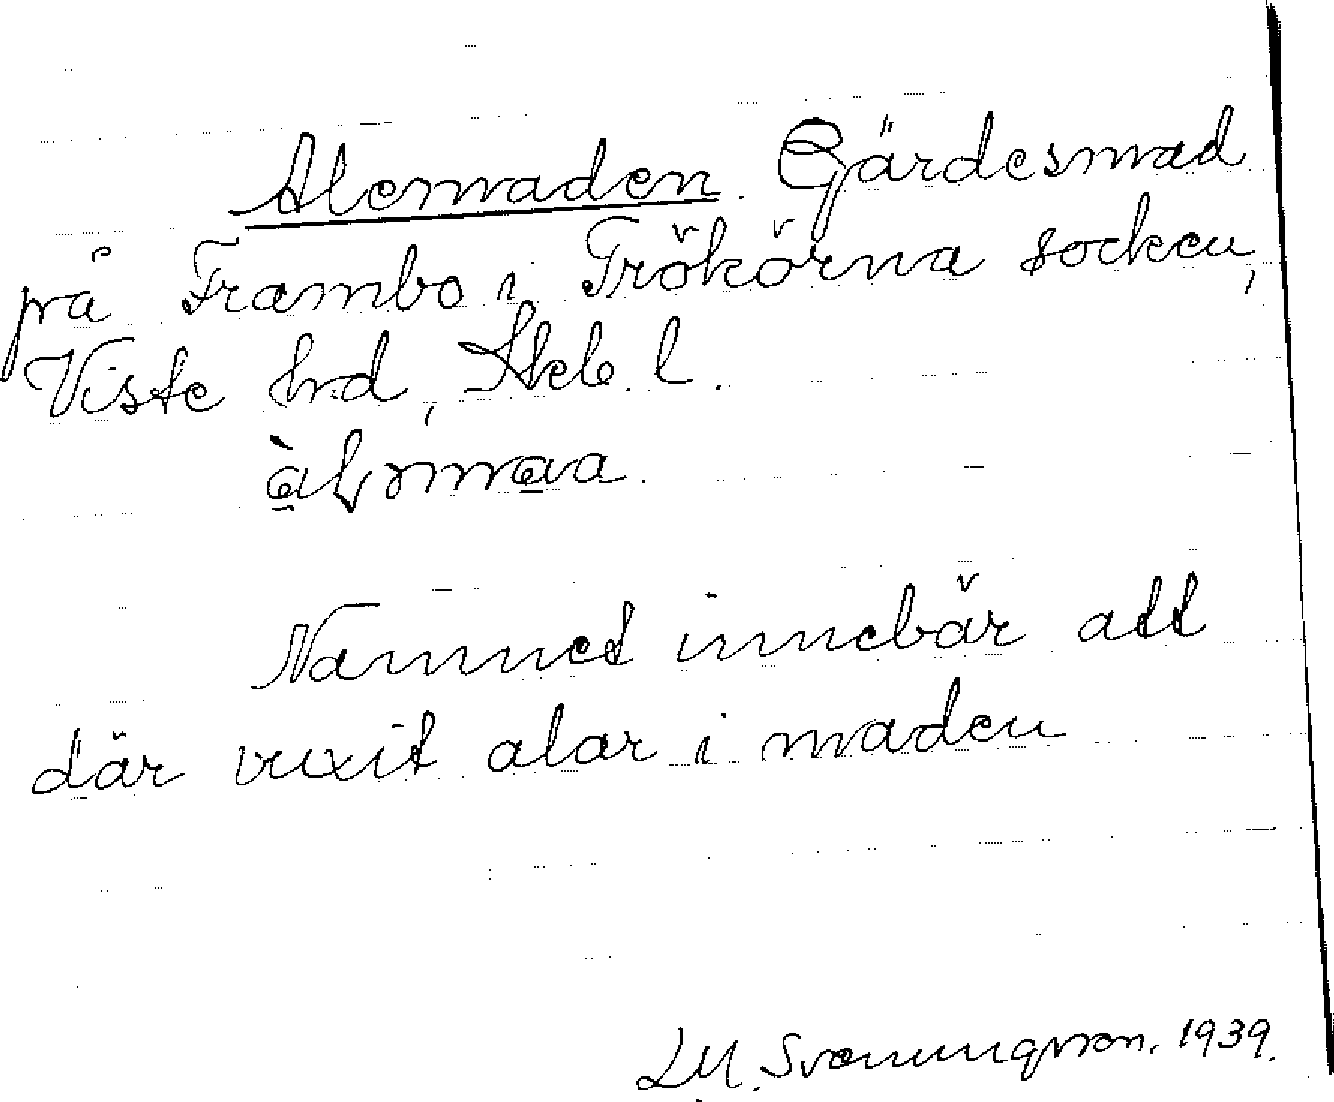 Alemaden. Gärdesmad
på Frambo i Trökörna socken,
Viste hrd, Skb. l.

Namnet innebär att
där vuxit alar i maden
L.M. Svenungsson. 1939.